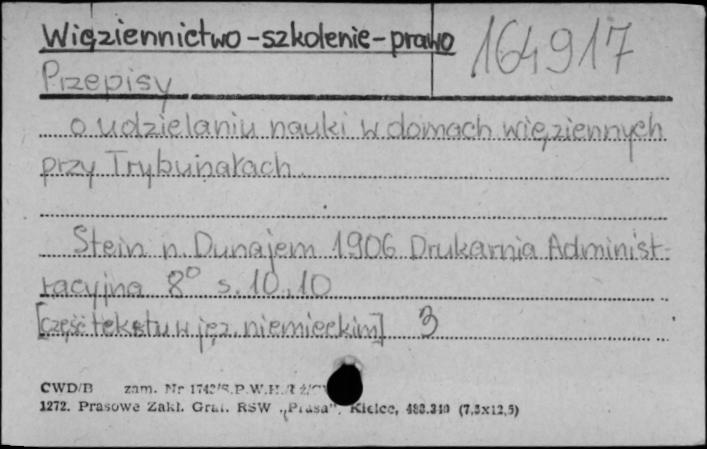 Więziennictwo - szkolenie - prawo 164917
Przepisy
o udzielaniu nauki w domach więziennych
przy Trybunałach
Stein n. Dunajem 1906 Drukarnia Administ-
racyjna 8° s. 10, 10
[część tekstu w jęz. niemieckim] 3
CWD/B zam. Nr
1272. Prasowe Zakł. Graf. RSW „Prasa”, Kielce, 483.340 (7,5x12,5)